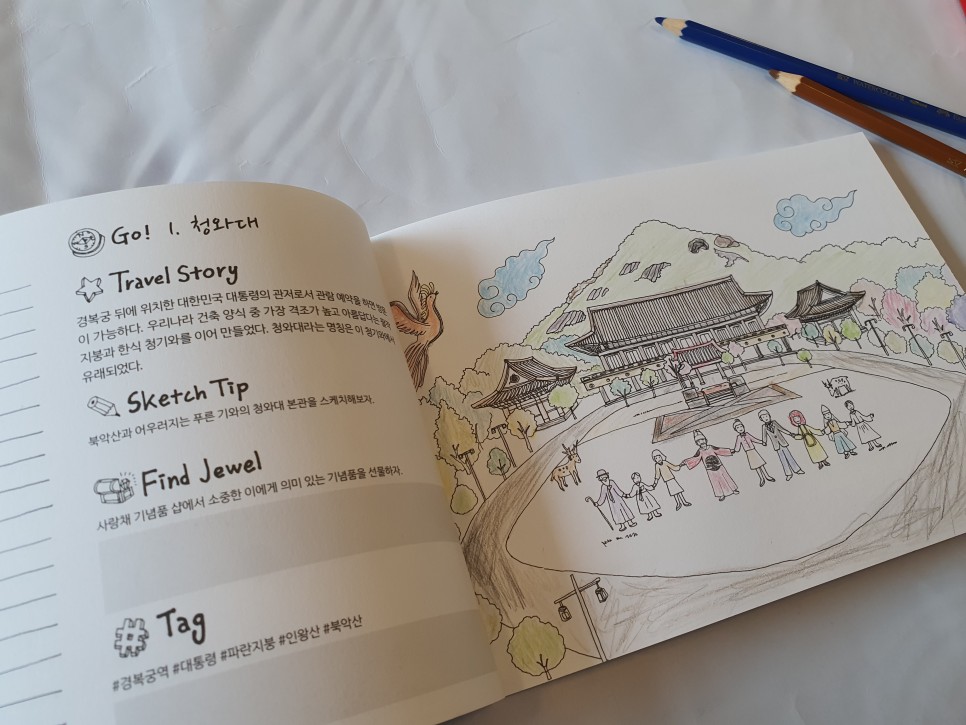 Go! 1. 청와대
Travel Story
경복궁 뒤에 위치한 대한민국 대통령의 관저로서 관람 예약을 하면
이 가능하다. 우리나라 건축 양식 중 가장 격조가 높고 아름답다는
지붕과 한식 청기와를 이어 만들었다. 청와대라는 명칭은 이 청기와에서
유래되었다.
Sketch Tip
북악산과 어우러지는 푸른 기와의 청와대 본관을 스케치해보자.
Find Jewel
사랑채 기념품 샵에서 소중한 이에게 의미 있는 기념품을 선물하자.
Tag
#경복궁역 #대통령 #파란지붕 #인왕산 #북악산